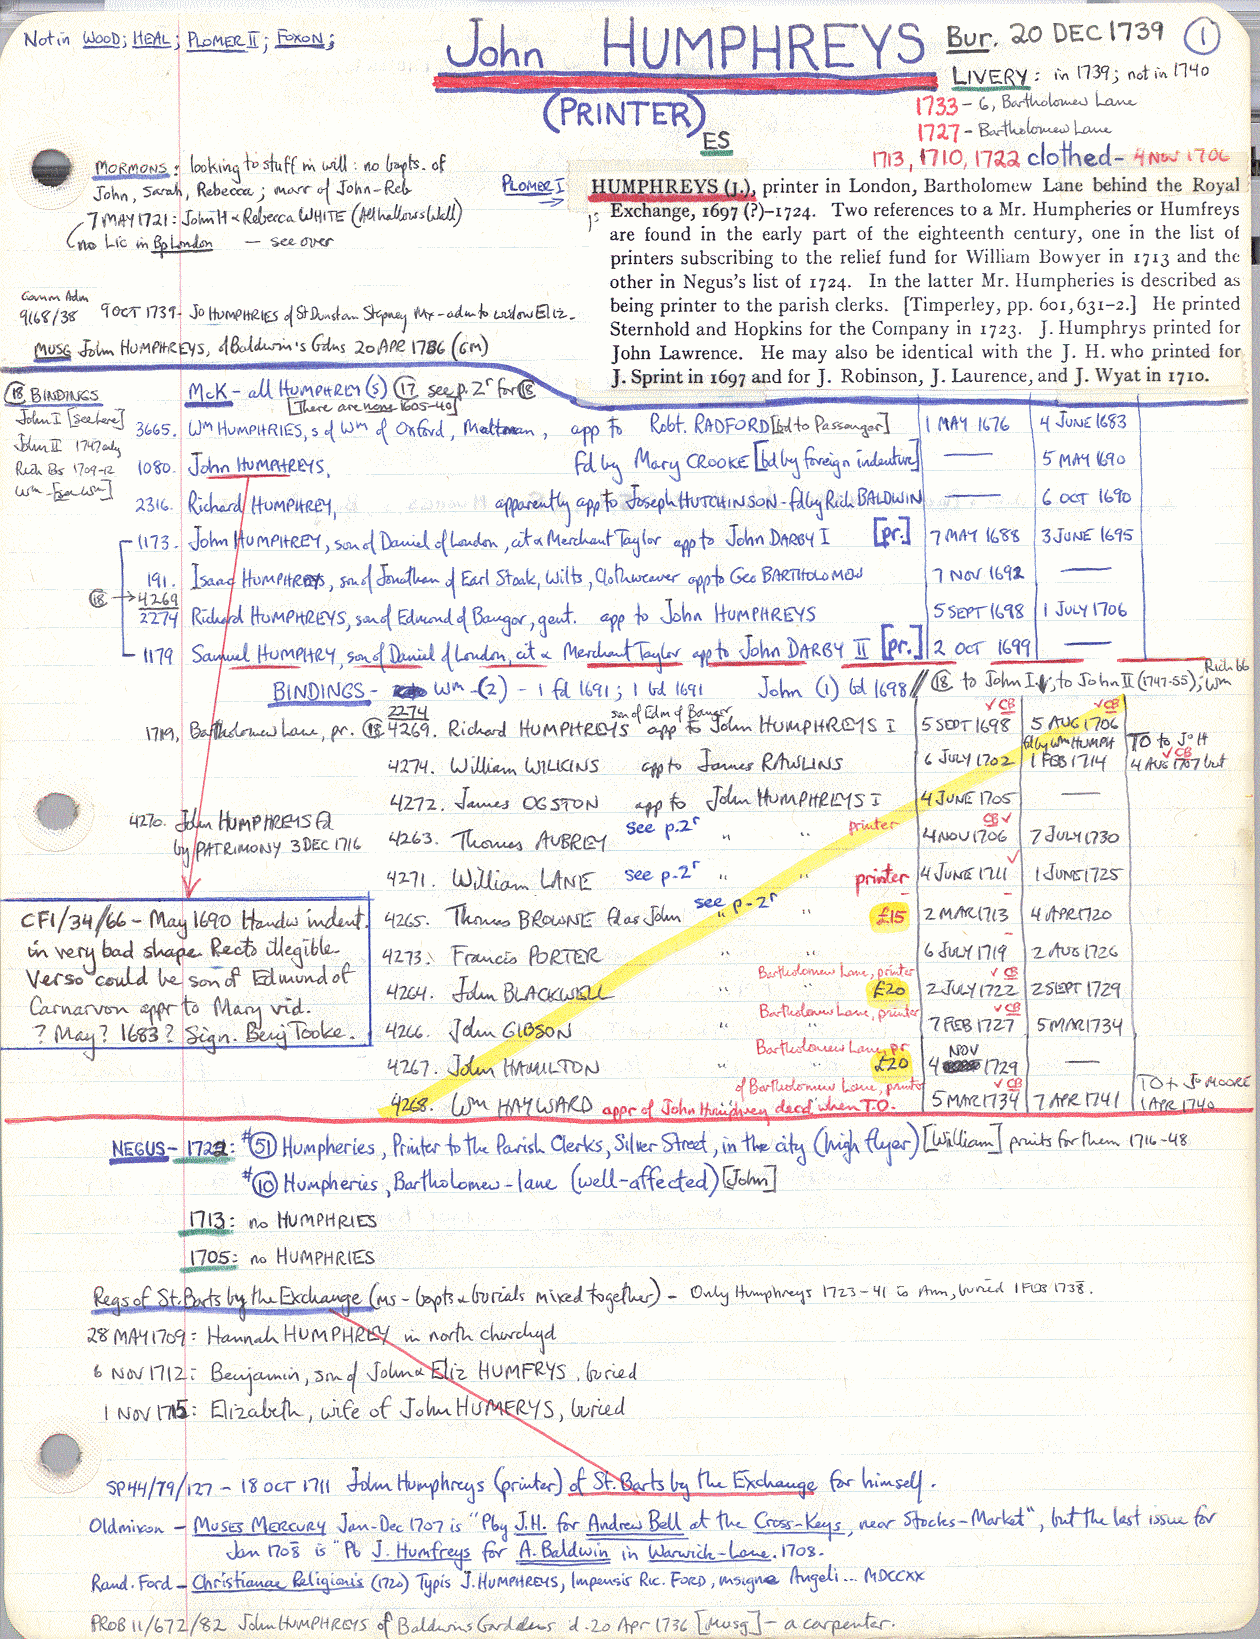 Not in WOOD; HEAL; PLOMER II; FOXON;
John HUMPHREYS
(PRINTER)
ES
Bur. 20 DEC 1739 (1)
LIVERY: in 1739; not in 1740
1733 - 6, Bartholomew Lane
1727 - Bartholomew Lane
1713, 1710, 1722 clothed - 4 NOV 1706
MORMONS: looking to stuff in will: no bapts. of
John, Sarah, Rebecca; marr of John-Reb
7 MAY 1721: John H & Rebecca WHITE (Allhallows Wall)
no Lic in Bp London — see over
PLOMER I
HUMPHREYS (J.), printer in London, Bartholomew Lane behind the Royal
Exchange, 1697 (?)–1724. Two references to a Mr. Humpheries or Humfreys
are found in the early part of the eighteenth century, one in the list of
printers subscribing to the relief fund for William Bowyer in 1713 and the
other in Negus's list of 1724. In the latter Mr. Humpheries is described as
being printer to the parish clerks. [Timperley, pp. 601, 631–2.] He printed
Sternhold and Hopkins for the Company in 1723. J. Humphrys printed for
John Lawrence. He may also be identical with the J. H. who printed for
J. Sprint in 1697 and for J. Robinson, J. Laurence, and J. Wyat in 1710.
Comm Adm
9168/38 9 OCT 1739 - Jo HUMPHRIES of St Dunstan Stepney Mx - adm to widow Eliz.
MUSG John HUMPHREYS, of Baldwin's Gdns 20 APR 1736 (GM)
(18) BINDINGS
John I [see here]
John II 1747 only
Rich Bs 1709-12
Wm - [see Wm]
McK - all HUMPHREY(S) (17) see p. 2r for (18)
[There are none 1605-40]
3665. Wm HUMPHRIES, s of Wm of Oxford, Maltman, app to Robt. RADFORD [bd to Passenger] 1 MAY 1676 4 JUNE 1683
1080. John HUMPHREYS, fd by Mary CROOKE [bd by foreign indenture] — 5 MAY 1690
2316. Richard HUMPHREY, apparently app to Joseph HUTCHINSON - fd by Rich BALDWIN — 6 OCT 1690
1173. John HUMPHREY, son of Daniel of London, cit & Merchant Taylor app to John DARBY I [pr.] 7 MAY 1688 3 JUNE 1695
191. Isaac HUMPHREYS, son of Jonathan of Earl Stoak, Wilts, Clothweaver app to Geo BARTHOLOMEW 7 NOV 1692 —
(18) → 4269
2274 Richard HUMPHREYS, son of Edmond of Bangor, gent. app to John HUMPHREYS 5 SEPT 1698 1 JULY 1706
1179 Samuel HUMPHRY, son of Daniel of London, cit & Merchant Taylor app to John DARBY II [pr.] 2 OCT 1699 —
BINDINGS - Wm - (2) - 1 fd 1691; 1 bd 1691 John (1) bd 1698 // (18) to John I; to John II (1747-55); Wm
2274 son of Edm of Bangor
1719, Bartholomew Lane, pr. (18) 4269. Richard HUMPHREYS app to John HUMPHREYS I 5 SEPT 1698 ✓CB 5 AUG 1706 ✓CB
4274. William WILKINS app to James RAWLINS 6 JULY 1702 fd by Wm HUMPH 1 FEB 1714 TO to J H ✓CB 4 AUG 1707 but
4272. James OGSTON app to John HUMPHREYS I 4 JUNE 1705 —
4270. John HUMPHREYS fd
by PATRIMONY 3 DEC 1716
4263. Thomas AUBREY see p. 2r " " printer CB ✓ 4 NOV 1706 7 JULY 1730
4271. William LANE see p. 2r " " printer ✓ 4 JUNE 1711 1 JUNE 1725
4265. Thomas BROWNE fd as John see p. 2r " " £15 2 MAR 1713 4 APR 1720
4273. Francis PORTER " " 6 JULY 1719 2 AUG 1726
4264. John BLACKWELL " Bartholomew Lane, printer £20 ✓CB 2 JULY 1722 2 SEPT 1729
4266. John GIBSON " " Bartholomew Lane, printer ✓CB 7 FEB 1727 5 MAR 1734
4267. John HAMILTON " Bartholomew Lane, pr £20 4 NOV 1729 —
4268. Wm HAYWARD of Bartholomew Lane, printer appr of John Humphrey decd when T.O. ✓CB 5 MAR 1734 7 APR 1741 TO to Jo MOORE 1 APR 1740
CF1/34/66 - May 1690 Handw indent.
in very bad shape. Recto illegible.
Verso could be son of Edmund of
Carnarvon appr to Mary vid.
? May? 1683? Sign. Benj Tooke.
NEGUS - 1722: #(51) Humpheries, Printer to the Parish Clerks, Silver Street, in the city (high flyer) [William] prints for them 1716-48
#(10) Humpheries, Bartholomew-lane (well-affected) [John]
1713: no HUMPHRIES
1705: no HUMPHRIES
Regs of St. Barts by the Exchange (ms - bapts & burials mixed together) - Only Humphreys 1723-41 is Ann, buried 1 FEB 1738.
28 MAY 1709: Hannah HUMPHREY in north churchyd
6 NOV 1712: Benjamin, son of John & Eliz HUMFRYS, buried
1 NOV 1715: Elizabeth, wife of John HUMFRYS, buried
SP44/79/127 - 18 OCT 1711 John Humphreys (printer) of St. Barts by the Exchange for himself.
Oldmixon - MUSES MERCURY Jan-Dec 1707 is "P by J.H. for Andrew Bell at the Cross-Keys, near Stocks-Market", but the last issue for
Jan 1708 is "Pb J. Humfreys for A. Baldwin in Warwick-Lane. 1708.
Rand. Ford - Christianae Religionis (1720) Typis J. HUMPHREYS, Impensis Ric. FORD, insigne Angeli... MDCCXX
PROB 11/672/82 John HUMPHREYS of Baldwins Gardens d. 20 Apr 1736 [Musg] - a carpenter.